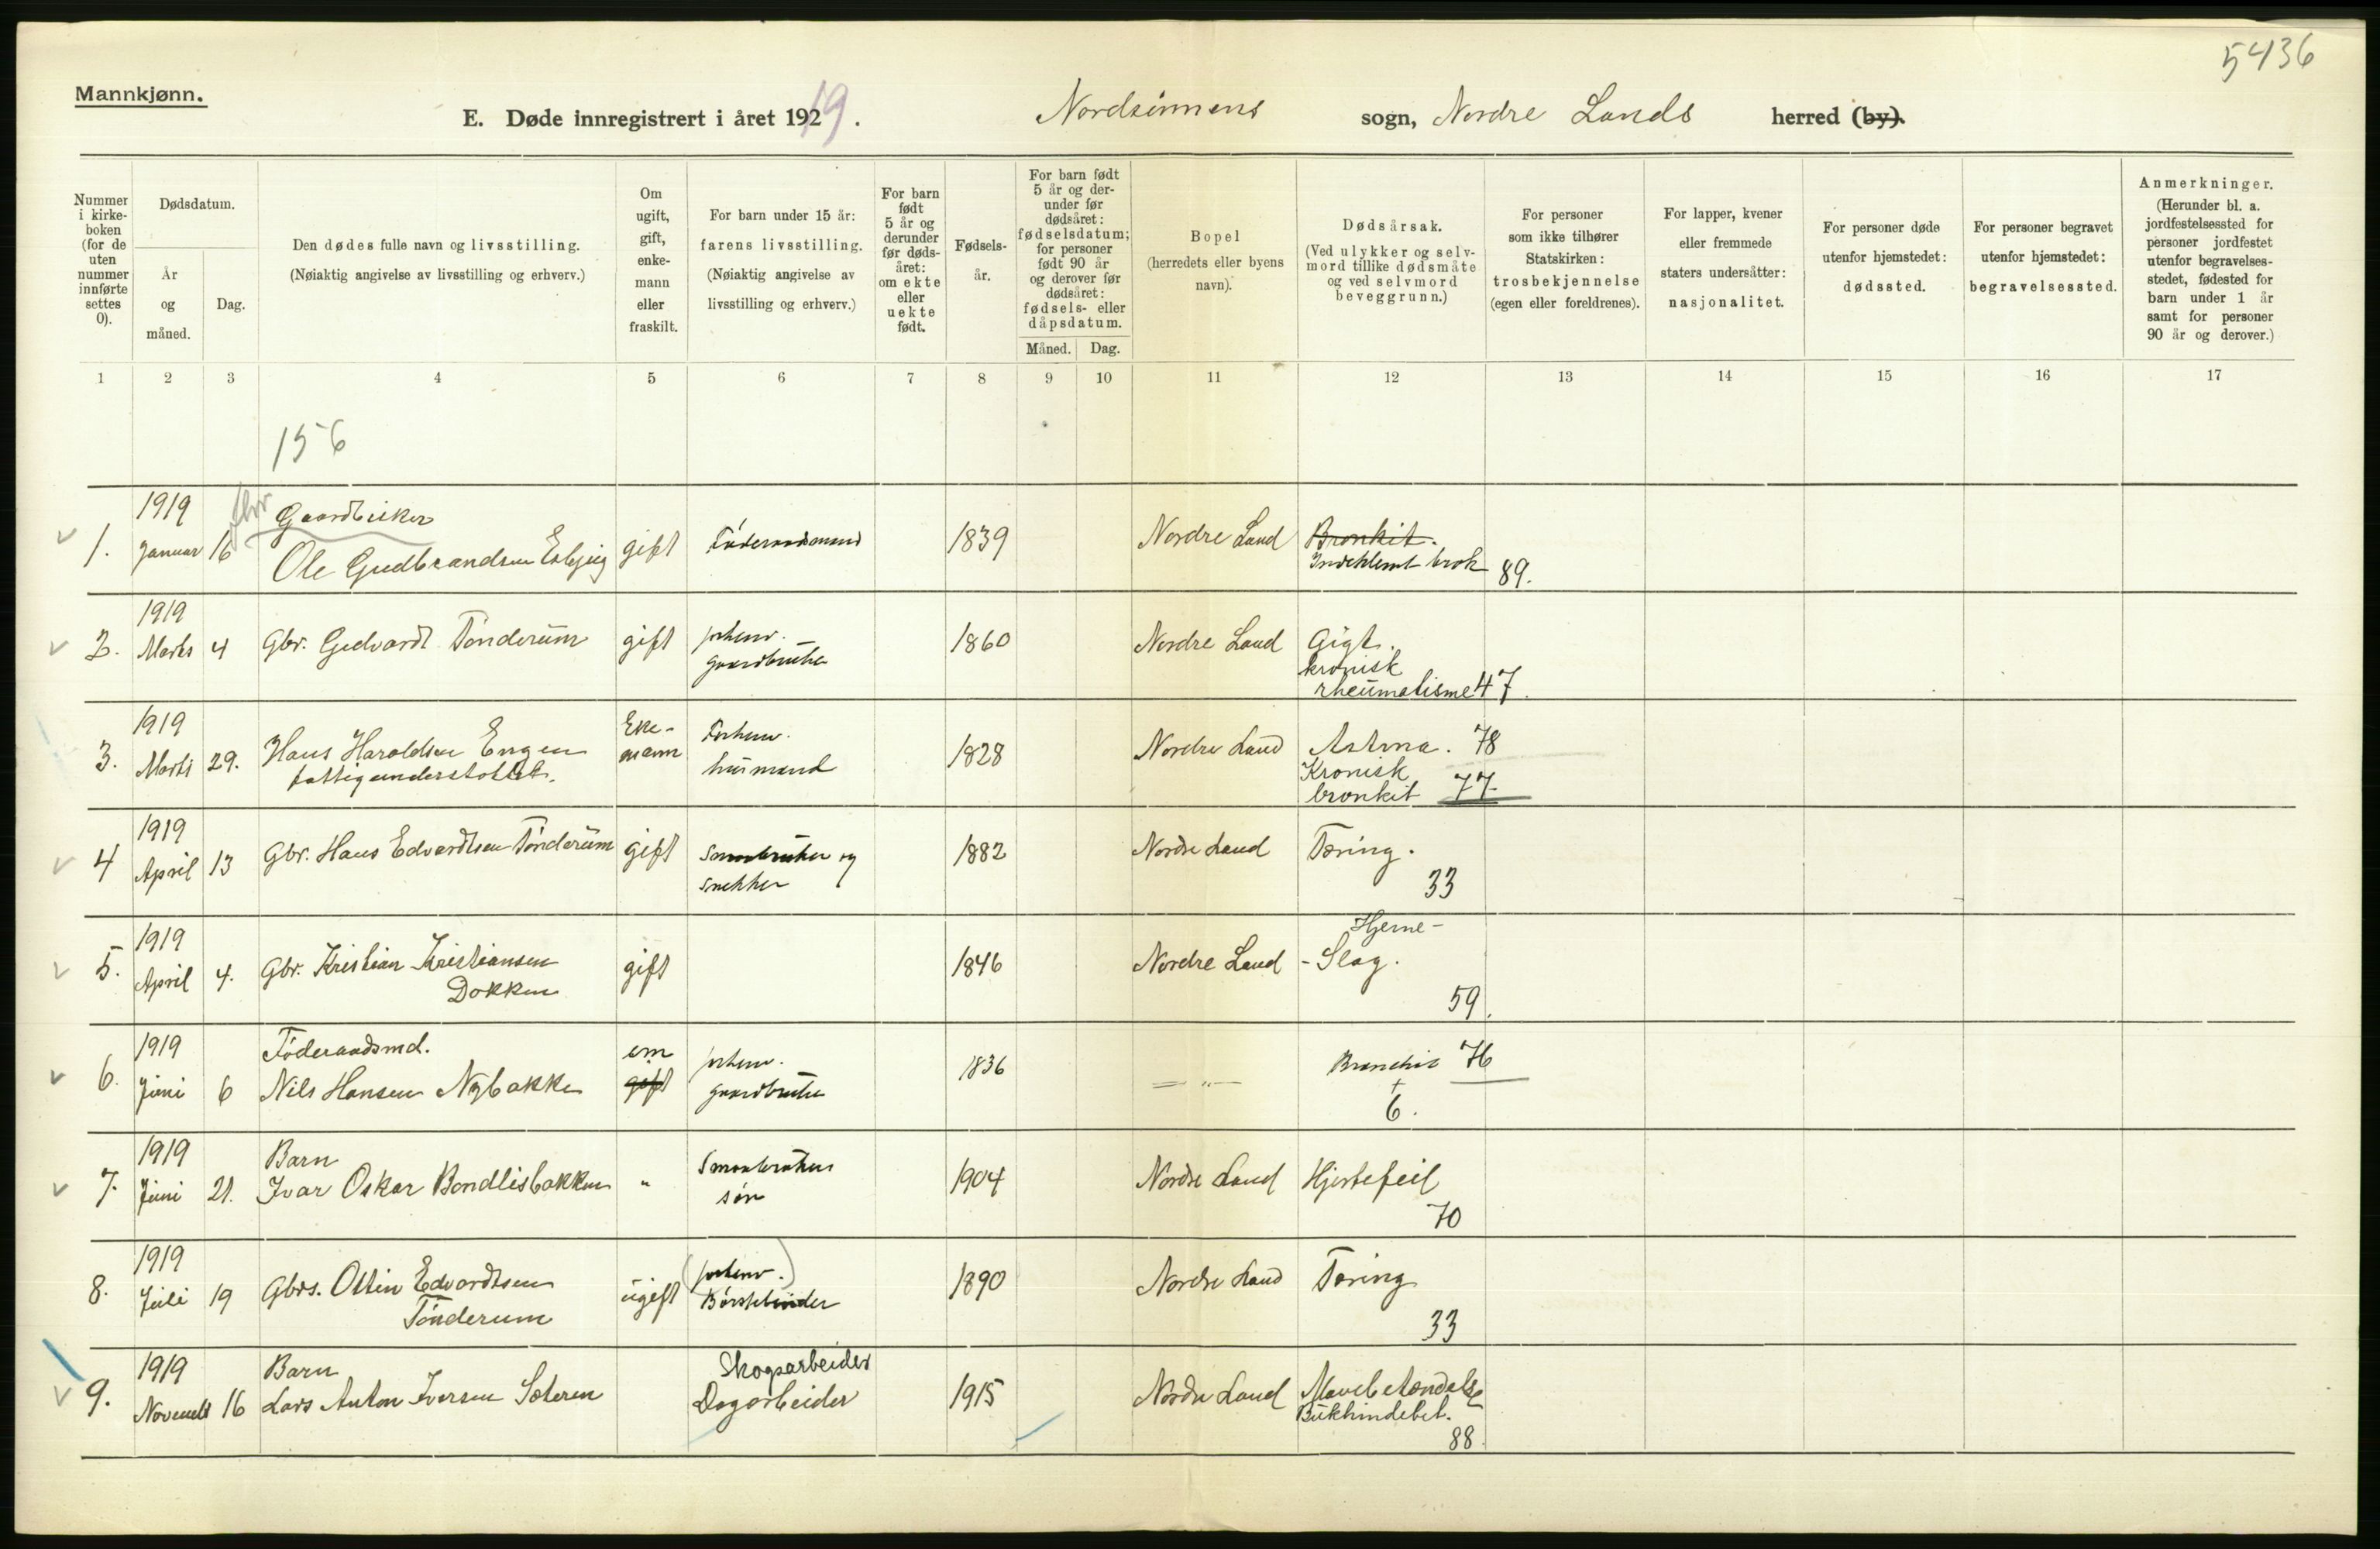 5436
Mannkjønn.
E. Døde innregistrert i året 1929. 19
Nordsinnens sogn, Nordre Lands herred (by).
Nummer i kirkeboken (for de uten nummer innførte settes 0).
Dødsdatum.
År og måned.
Dag.
Den dødes fulle navn og livsstilling.
(Nøiaktig angivelse av livsstilling og erhverv.)
Om ugift, gift, enkemann eller fraskilt.
For barn under 15 år:
farens livsstilling.
(Nøiaktig angivelse av livsstilling og erhverv.)
For barn født 5 år og derunder før dødsåret: om ekte eller uekte født.
Fødselsår.
For barn født 5 år og derunder før dødsåret: fødselsdatum; for personer født 90 år og derover før dødsåret: fødsels- eller dåpsdatum.
Måned. Dag.
Bopel
(herredets eller byens navn).
Dødsårsak.
(Ved ulykker og selvmord tillike dødsmåte og ved selvmord beveggrunn.)
For personer som ikke tilhører Statskirken: trosbekjennelse (egen eller foreldrenes).
For lapper, kvener eller fremmede staters undersåtter: nasjonalitet.
For personer døde utenfor hjemstedet: dødssted.
For personer begravet utenfor hjemstedet: begravelsessted.
Anmerkninger.
(Herunder bl. a. jordfestelsessted for personer jordfestet utenfor begravelsesstedet, fødested for barn under 1 år samt for personer 90 år og derover.)
1 2 3 4 5 6 7 8 9 10 11 12 13 14 15 16 17
156
1. 1919 Januar 16 fhv Gaardbruker
Ole Gudbrandsen gift Föderaadsmand 1839 Nordre Land Bronkit.
Indeklemt brok 89.
2. 1919 Marts 4 Gbr. Edvardt Tönderum gift forhenv. gaardbruker 1860 Nordre Land Gigt.
kronisk rheumatisme 47.
3. 1919 Marts 29. Hans Haroldsen Engen
fattigunderstöttet. Enkemann Forhenv. husmand 1828 Nordre Land Astma. 78
Kronisk bronkit 77.
4 1919 April 13 Gbr. Hans Edvardtsen Tönderum gift Smaabruker og snekker 1882 Nordre Land Tæring.
33
5. 1919 April 4. Gbr. Kristian Kristiansen
Dokken gift 1846 Nordre Land Hjerne-
-Slag.
59.
6. 1919 Juni 6 Föderaadsmd.
Nils Hansen Nybakke em gift forhenv. gaardbruker 1836 — " — Bronchit 76
+
6.
7. 1919 Juni 21. Barn
Ivar Oskar Bondlisbakken " Smaabrukers sön 1904 Nordre Land Hjertefeil
70
8. 1919 Juli 19 Gbrs. Ottin Edvardtsen
Tönderum ugift (forhenv.) Börstebinder 1890 Nordre Land Tæring
33
9. 1919 Novembr 16 Barn
Lars Anton Iversen Sæteren Skogsarbeider
Dagarbeider 1915 Nordre Land Mavebetændelse
Bukhindebet.
88.